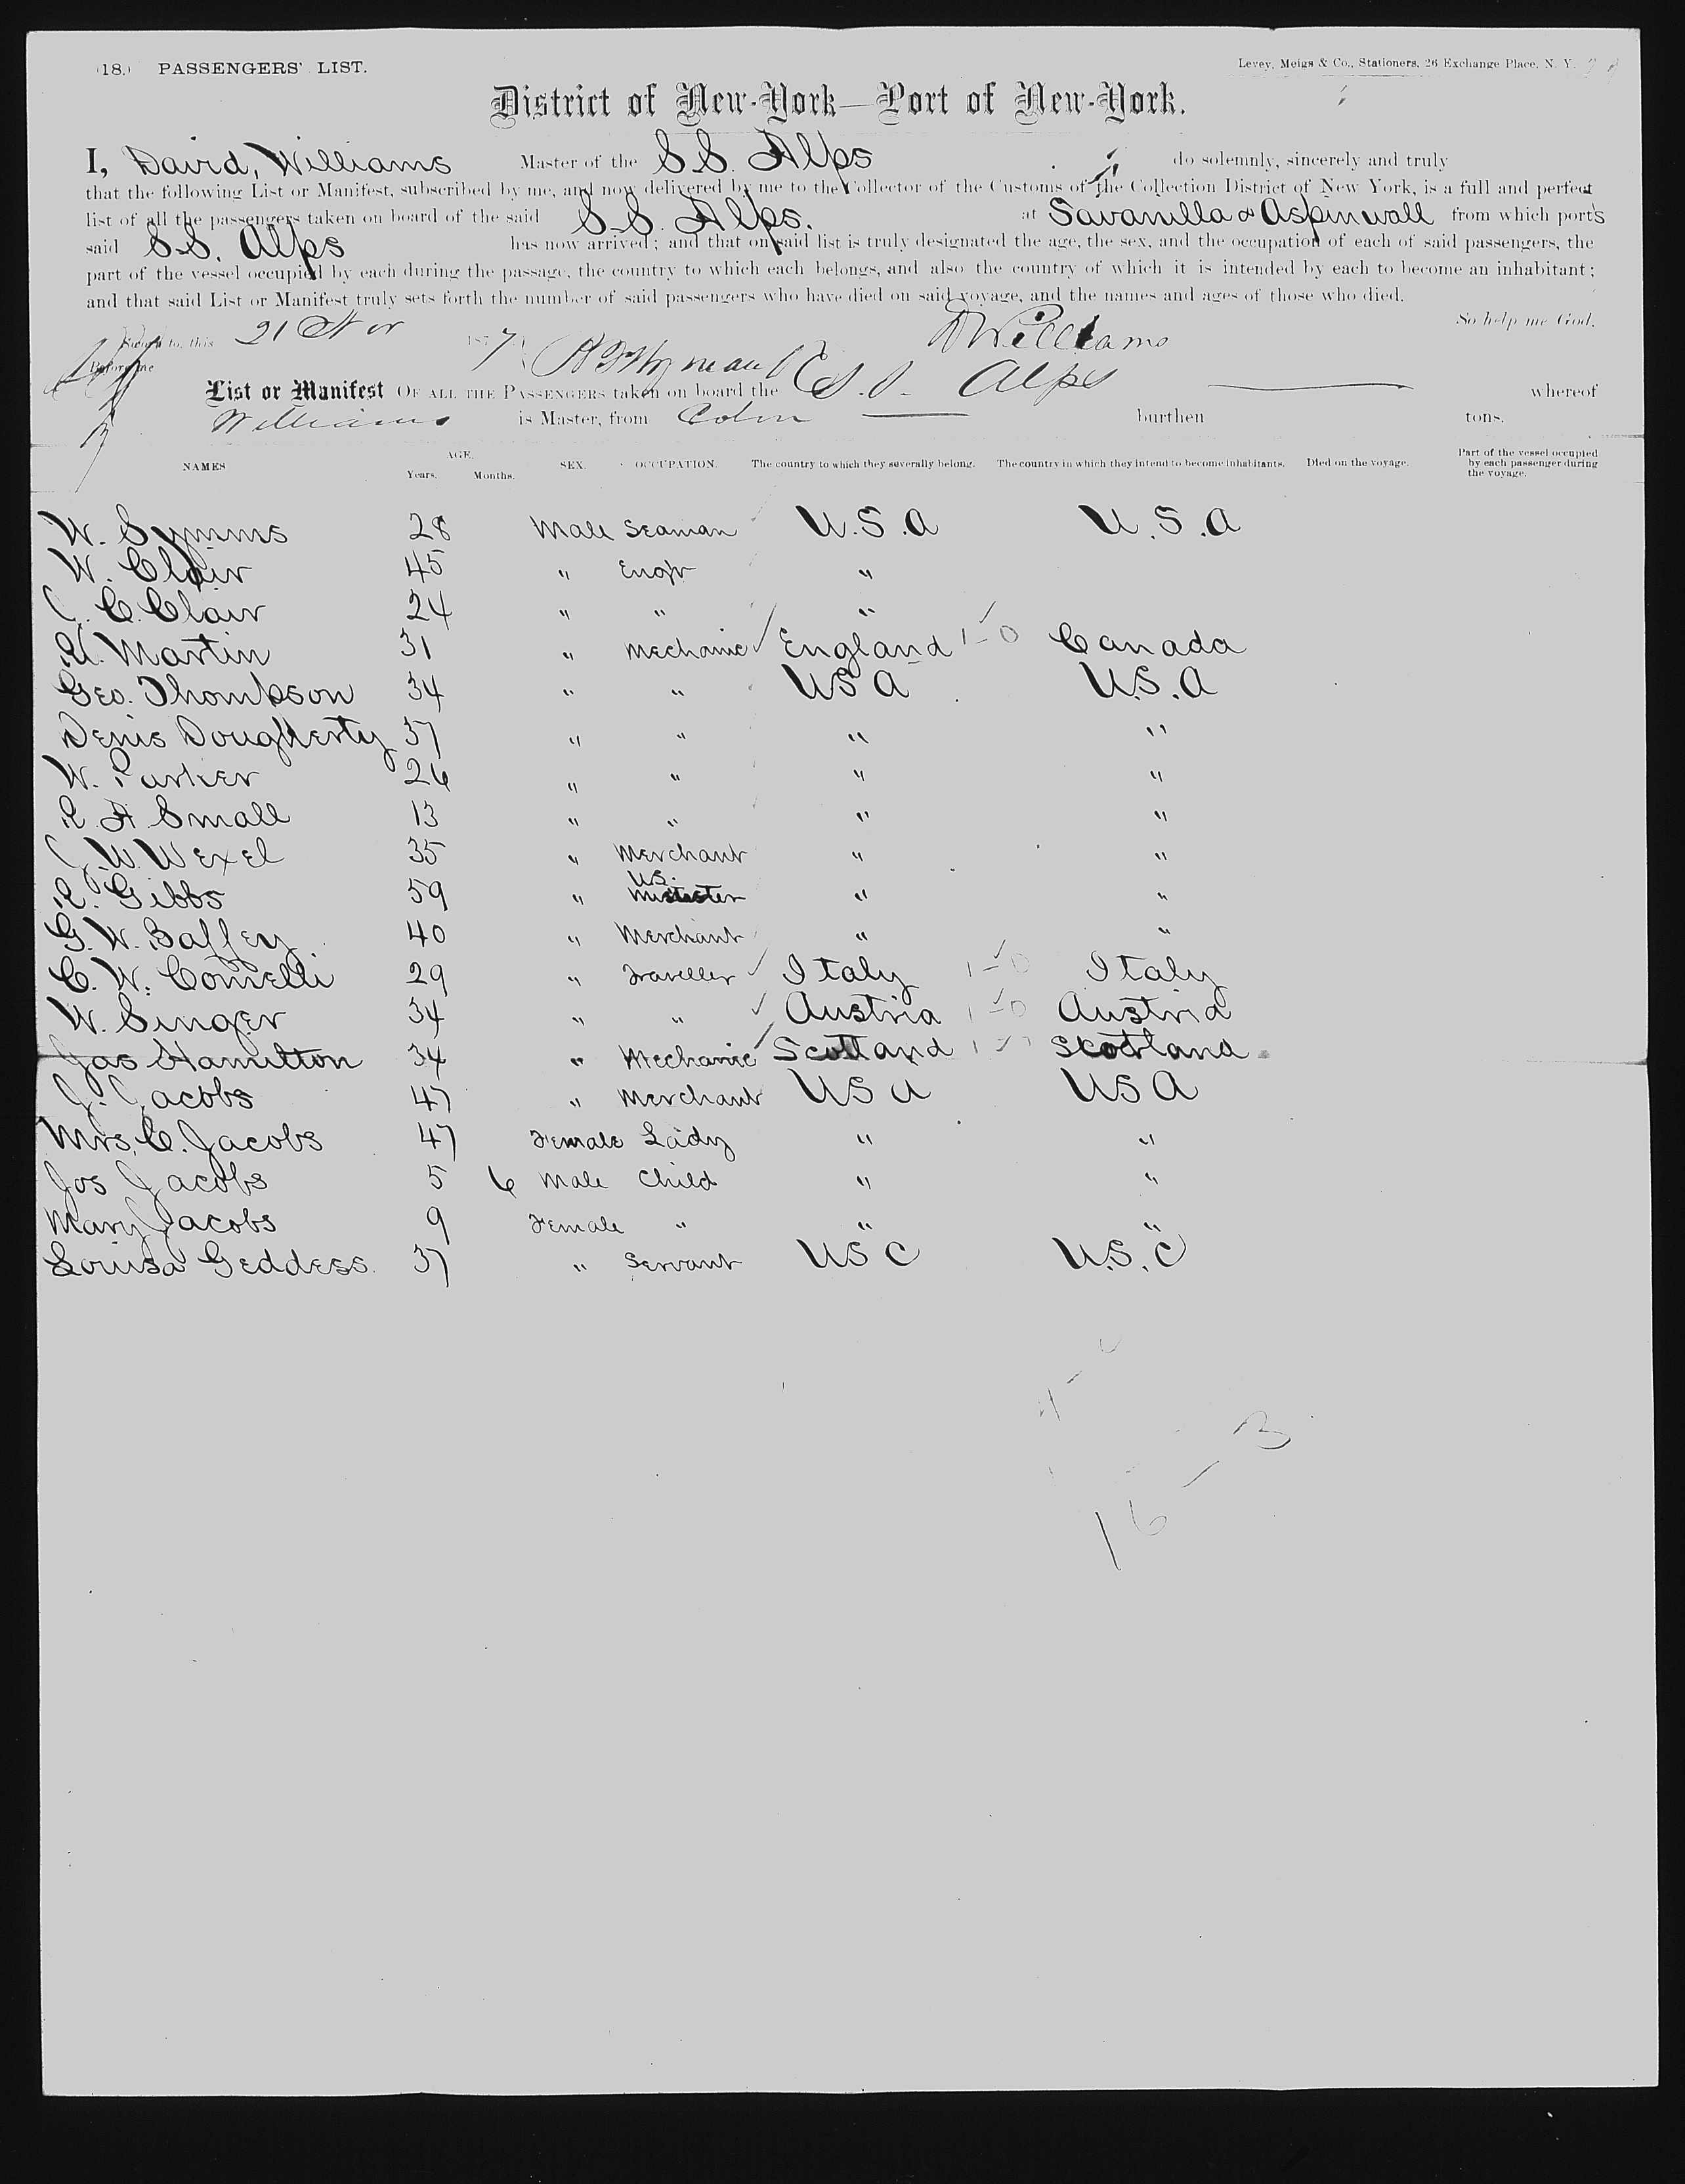 (18.) PASSENGERS' LIST.
Levey, Meigs & Co., Stationers, 26 Exchange Place, N. Y.
District of New-York—Port of New-York.
I, David, Williams Master of the S.S. Alps do solemnly, sincerely and truly
that the following List or Manifest, subscribed by me, and now delivered by me to the Collector of the Customs of the Collection District of New York, is a full and perfect
list of all the passengers taken on board of the said S.S. Alps. at Savanilla & Aspinwall from which port's
said S.S. Alps has now arrived; and that on said list is truly designated the age, the sex, and the occupation of each of said passengers, the
part of the vessel occupied by each during the passage, the country to which each belongs, and also the country of which it is intended by each to become an inhabitant;
and that said List or Manifest truly sets forth the number of said passengers who have died on said voyage, and the names and ages of those who died.
So help me God.
Sworn to, this 21 Nov 1877 DWilliams
Before me
List or Manifest OF ALL THE PASSENGERS taken on board the S.S. Alps whereof
Williams is Master, from Colon burthen tons.
NAMES AGE. Years. Months. SEX. OCCUPATION. The country to which they severally belong. The country in which they intend to become inhabitants. Died on the voyage. Part of the vessel occupied by each passenger during the voyage.
W. Symms 28 Male Seaman U.S.A U.S.A
W. Clair 45 " Engr "
C. Clair 24 " " "
Martin 31 " Mechanic England 1-0 Canada
Geo. Thompson 34 " " USA U.S.A
Denis Dougherty 37 " " " "
W. Parker 26 " " " "
A Small 13 " " " "
W Wexel 35 " Merchant " "
Gibbs 59 " U.S. Minister " "
G. W. Baffey 40 " Merchant " "
C. W. Comelli 29 " Traveller Italy 1-0 Italy
W. Singer 34 " " Austria 1-0 Austria
Jas Hamilton 34 " Mechanic Scotland Scotland
J. Jacobs 47 " Merchant USA USA
Mrs. C. Jacobs 47 Female Lady " "
Jos Jacobs 5 6 Male Child " "
Mary Jacobs 9 Female " " "
Louisa Geddess. 37 " Servant USC U.S.C
16